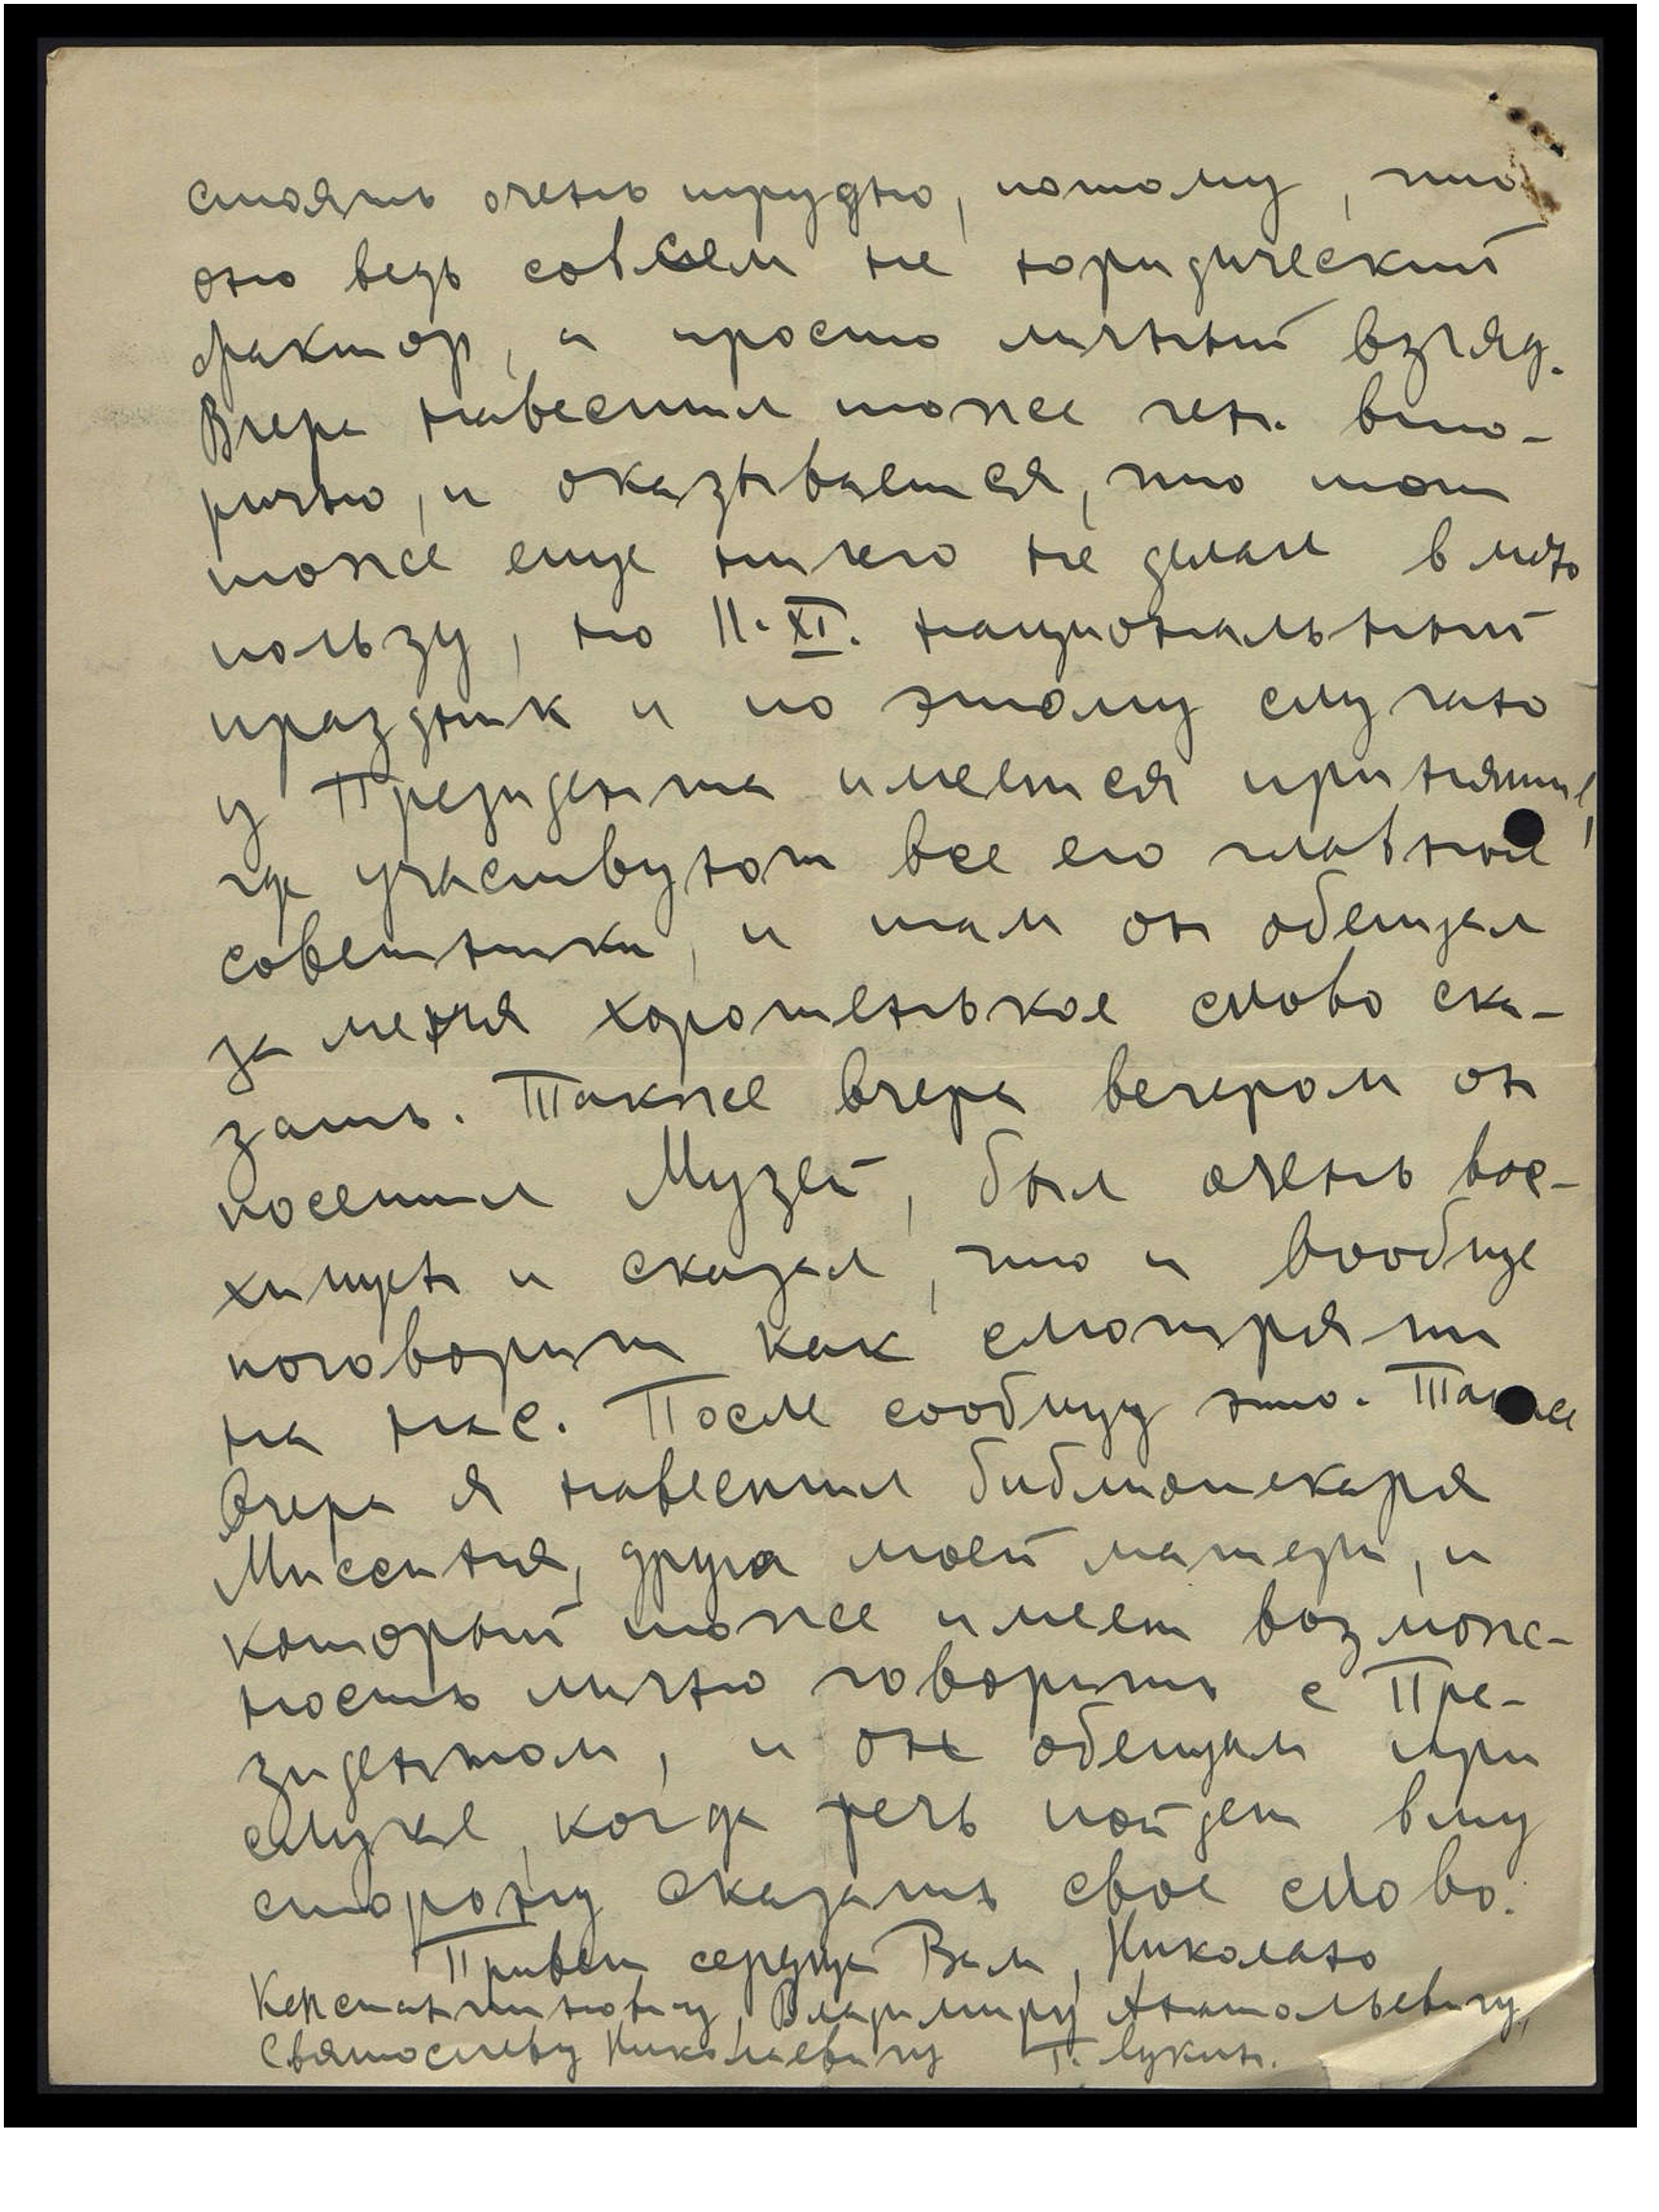 стоять очень трудно, потому, что
оно ведь совсем не юридический
фактор, а просто личный взгляд.
Вчера навестил тоже ген. вто-
рично, и оказывается, что тот
тоже еще ничего не делал в мою
пользу, но 11.XI. национальный
праздник и по этому случаю
у Президента имеется принятие,
где участвуют все его главные
советники, и там он обещал
за меня хорошенькое слово ска-
зать. Также вчера вечером он
посетил Музей, был очень вос-
хищен и сказал, что и вообще
поговорит как смотрят
на нас. После сообщу это. Также
Вчера я навестил библиотекаря
Миссиня, друга моей матери, и
который тоже имеет возмож-
ность лично говорить с Пре-
зидентом, и он обещал при
случае, когда речь пойдет в ту
сторону сказать свое слово.
Привет сердца Вам, Николаю
Константиновичу, Владимиру Анатольевичу,
Святославу Николаевичу Г. Лукин.